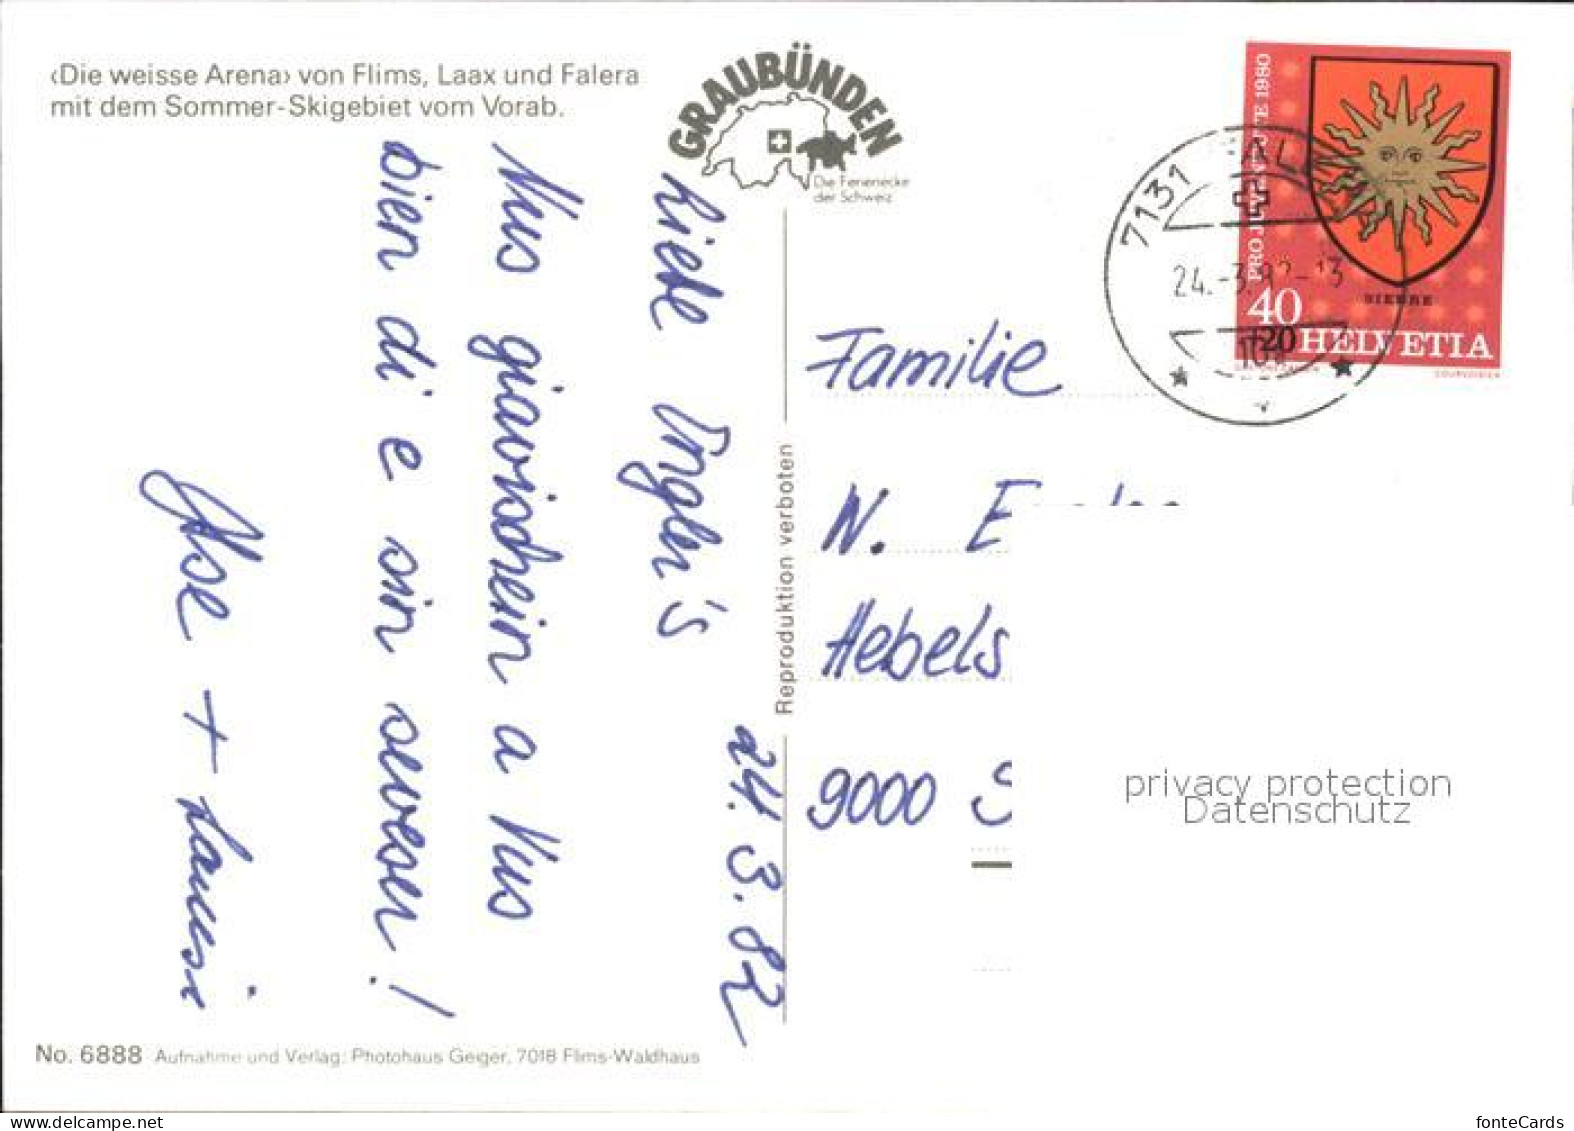 ‹Die weisse Arena› von Flims, Laax und Falera
mit dem Sommer-Skigebiet vom Vorab.
GRAUBÜNDEN
Die Ferienecke
der Schweiz
24.3.82
Liebe Engler's
Nus giavischein a Vus
bien di e sin seveser!
Ilse +
Reproduktion verboten
PRO JUVENTUTE 1980
SIERRE
40
+20
HELVETIA
COURVOISIER
7131
24.-3.
Familie
N. E
Hebels
9000 S
privacy protection
Datenschutz
No. 6888 Aufnahme und Verlag: Photohaus Geiger, 7018 Flims-Waldhaus
www.delcampe.net
fonteCards